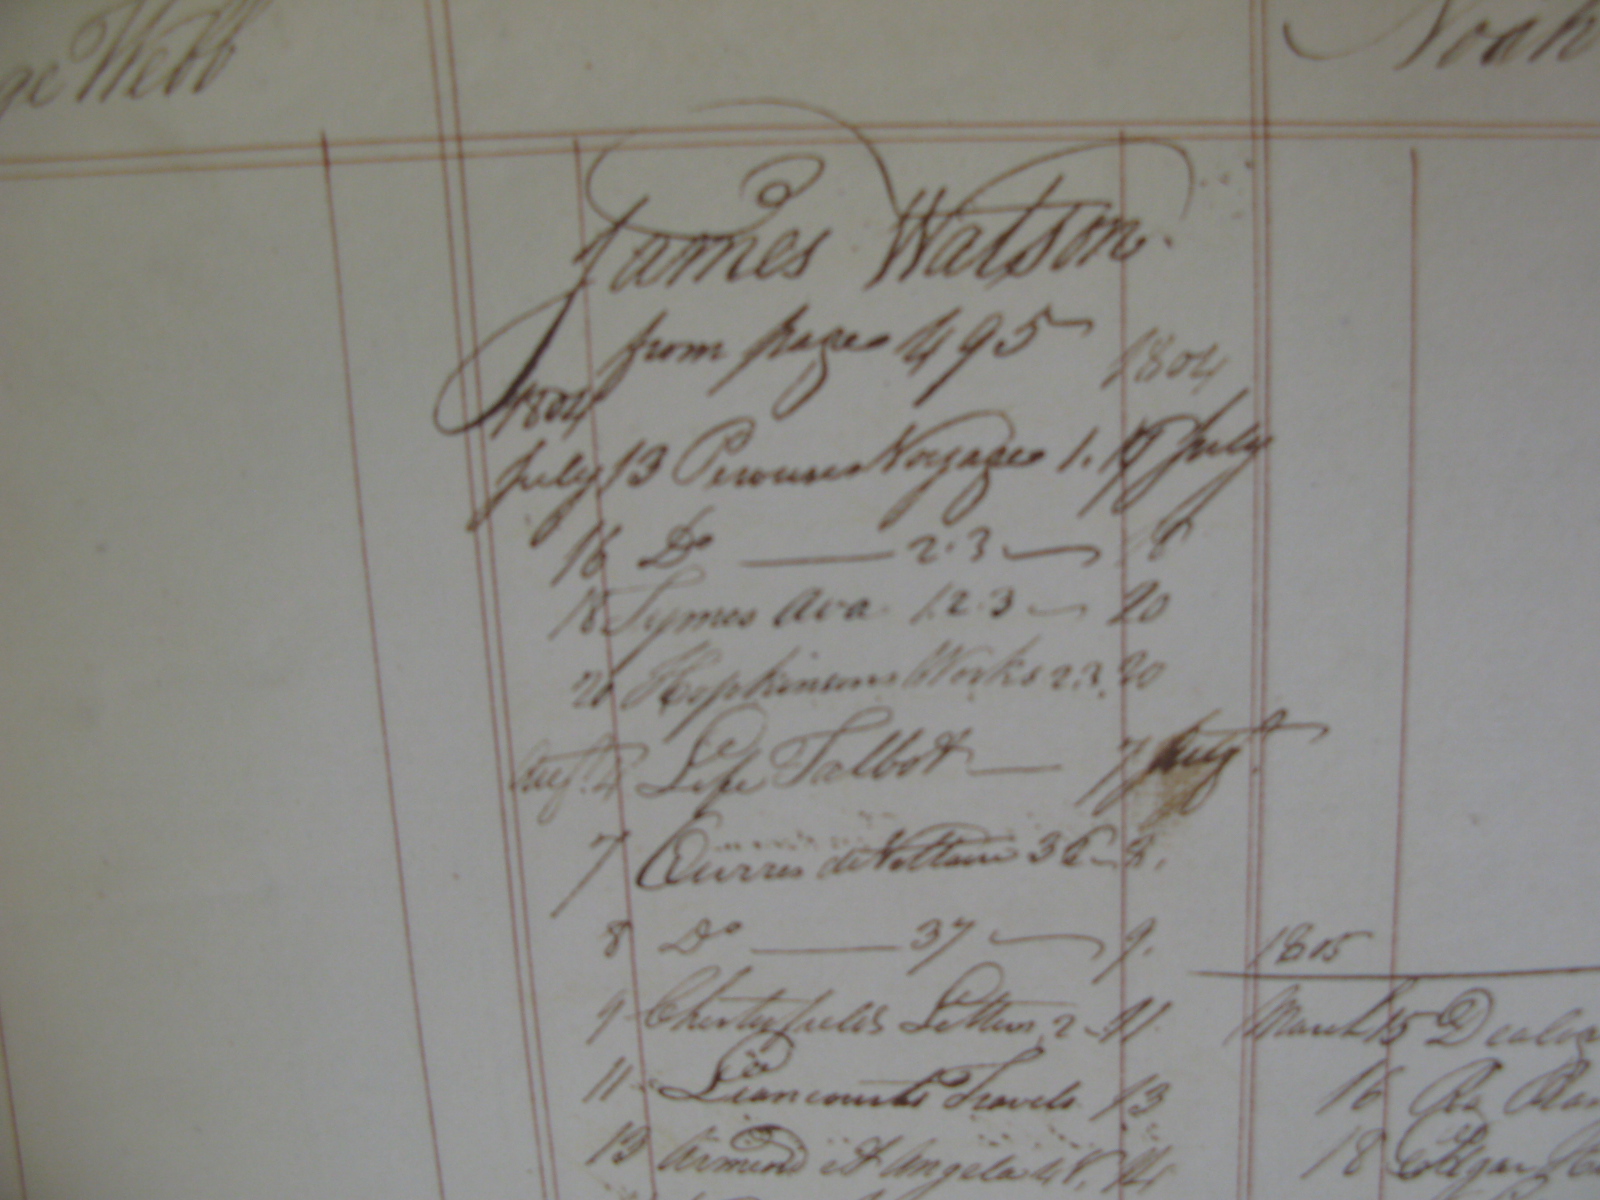 ge Webb
Noah
James Watson.
from page 495
1804 1804
July 13 Perouses Voyages 1. 17 July
16 Do 2.3 18
18 Symes Ava 1.2.3 20
20 Hopkinsons Works 2.3. 20
Augt. 4 Life Talbot 7 Augt
7 Œuvres de Voltaire 36 8.
8 Do 37 9.
9 Chesterfields Letters, 2 11.
11 Liancourts Travels 13
13 Armand et Angela 4 14
1805
March 15
16
18 Edgar